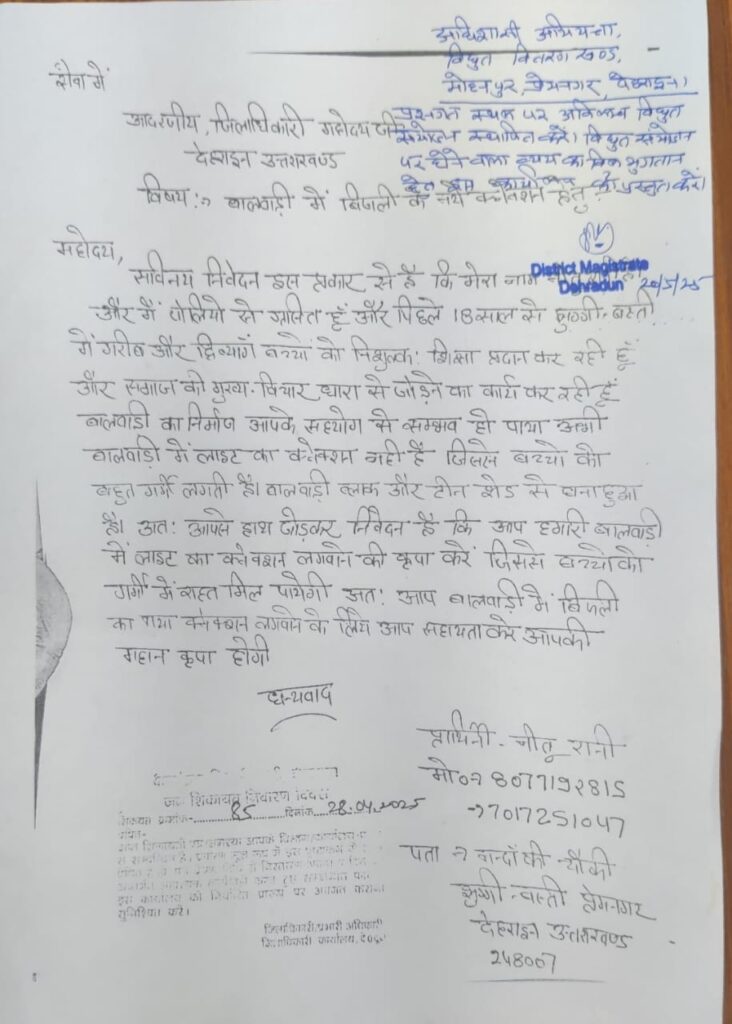 अधिशासी अभियन्ता,
विद्युत वितरण खण्ड,
मोहनपुर, प्रेमनगर, देहरादून।
प्रश्नगत स्थल पर अविलम्ब विद्युत
संयोजन स्थापित करें। विद्युत संयोजन
पर होने वाला व्यय का बिल भुगतान
हेतु इस कार्यालय को प्रस्तुत करें।
सेवा में
आदरणीय, जिलाधिकारी महोदय जी
देहरादून उत्तराखण्ड
विषय :→ बालवाड़ी में बिजली के नये कनेक्शन हेतु
District Magistrate
Dehradun 20/5/25
महोदय,
सविनय निवेदन इस प्रकार से है कि मेरा नाम
और मैं पोलियो से ग्रसित हूँ और पिछले 18 साल से झुग्गी-बस्ती
में गरीब और दिव्यांग बच्चों को निशुल्क: शिक्षा प्रदान कर रही हूँ
और समाज को मुख्य-विचार धारा से जोड़ने का कार्य कर रही हूँ
बालवाडी का निर्माण आपके सहयोग से सम्भव हो पाया अभी
बालवाडी में लाइट का कनेक्शन नही है जिससे बच्चों को
बहुत गर्मी लगती है। बालवाड़ी ब्लाक और टीन शेड से बना हुआ
है। अत: आपसे हाथ जोड़कर निवेदन है कि आप हमारी बालवाड़ी
में लाइट का कनेक्शन लगवाने की कृपा करें जिससे बच्चों को
गर्मी में राहत मिल पायेगी अत: आप बालवाड़ी में बिजली
का नया कनेक्शन लगवाने के लिये आप सहायता करे आपकी
महान कृपा होगी
धन्यवाद
प्रार्थिनी - नीतू रानी
मो० → 8077192815
→ 7017251047
पता → नन्दा की चौकी
झुग्गी-बस्ती प्रेमनगर
देहरादून उत्तराखण्ड
248007
जन शिकायत निवारण दिवस
शिकायत क्रमांक- 85 दिनांक 28.04.2025
इस कार्यालय को निर्धारित प्रारूप पर अवगत कराना
सुनिश्चित करें।
जिलाधिकारी/प्रभारी अधिकारी
जिलाधिकारी कार्यालय, देहरादून